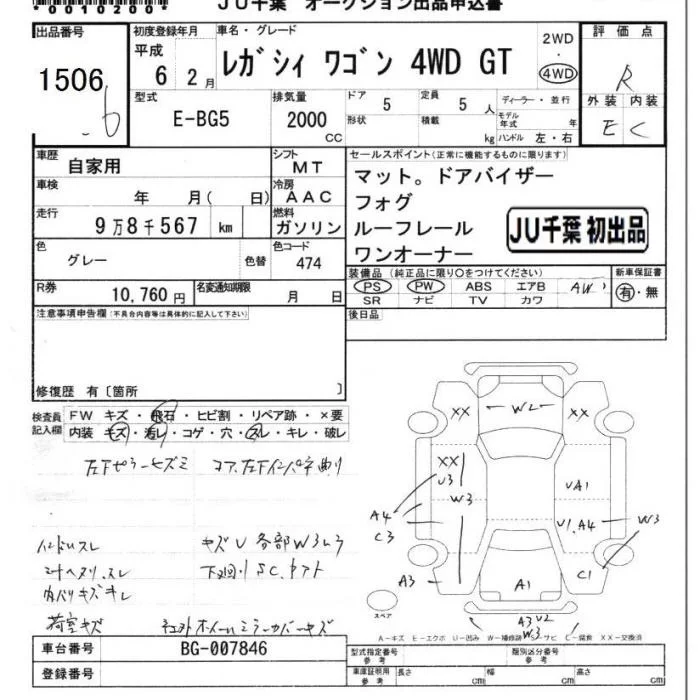 *0010200*
JU千葉 オークション出品申込書
出品番号
1506
初度登録年月
平成
6 2月
車名・グレード
レガシィ ワゴン 4WD GT
2WD
・
4WD
評価点
R
外装 内装
E C
型式
E-BG5
排気量
2000
CC
ドア
5
定員
5 人
形状
積載
kg
ディーラー・並行
モデル年式 年
ハンドル 左・右
車歴
自家用
シフト
MT
車検
年 月( 日)
冷房
AAC
走行
9万8千567 km
燃料
ガソリン
色
グレー
色替
色コード
474
R券
10,760円
名変通知期限
月 日
セールスポイント(正常に機能するものに限ります)
マット。ドアバイザー
フォグ
ルーフレール
ワンオーナー
JU千葉 初出品
装備品(純正品に限り○をつけてください)
PS PW ABS エアB AW
SR ナビ TV カワ
新車保証書
有・無
後日品
注意事項申告欄(不具合内容等は具体的に記入して下さい)
修復歴 有〔箇所 〕
検査員
記入欄
FW キズ・飛石・ヒビ割・リペア跡・×要
内装 キズ・汚れ・コゲ・穴・スレ・キレ・破レ
左下ピラーヒズミ コア、左下インパネ曲り
ハンドルスレ
キズU各部W3ムラ
シートヘタリ、スレ
内バリキズキレ
荷室キズ
XX W2 XX
XX
U3
W3
UA1
A4
C3
U1、A4
W3
A3
A1
C1
A3 U2
W3
スペア
A-キズ E-エクボ U-凹み W-補修跡 S-サビ C-腐食 XX-交換済
車台番号
BG-007846
登録番号
型式指定番号
参考
類別区分番号
参考
車庫証明用
参考
長さ cm
幅 cm
高さ cm